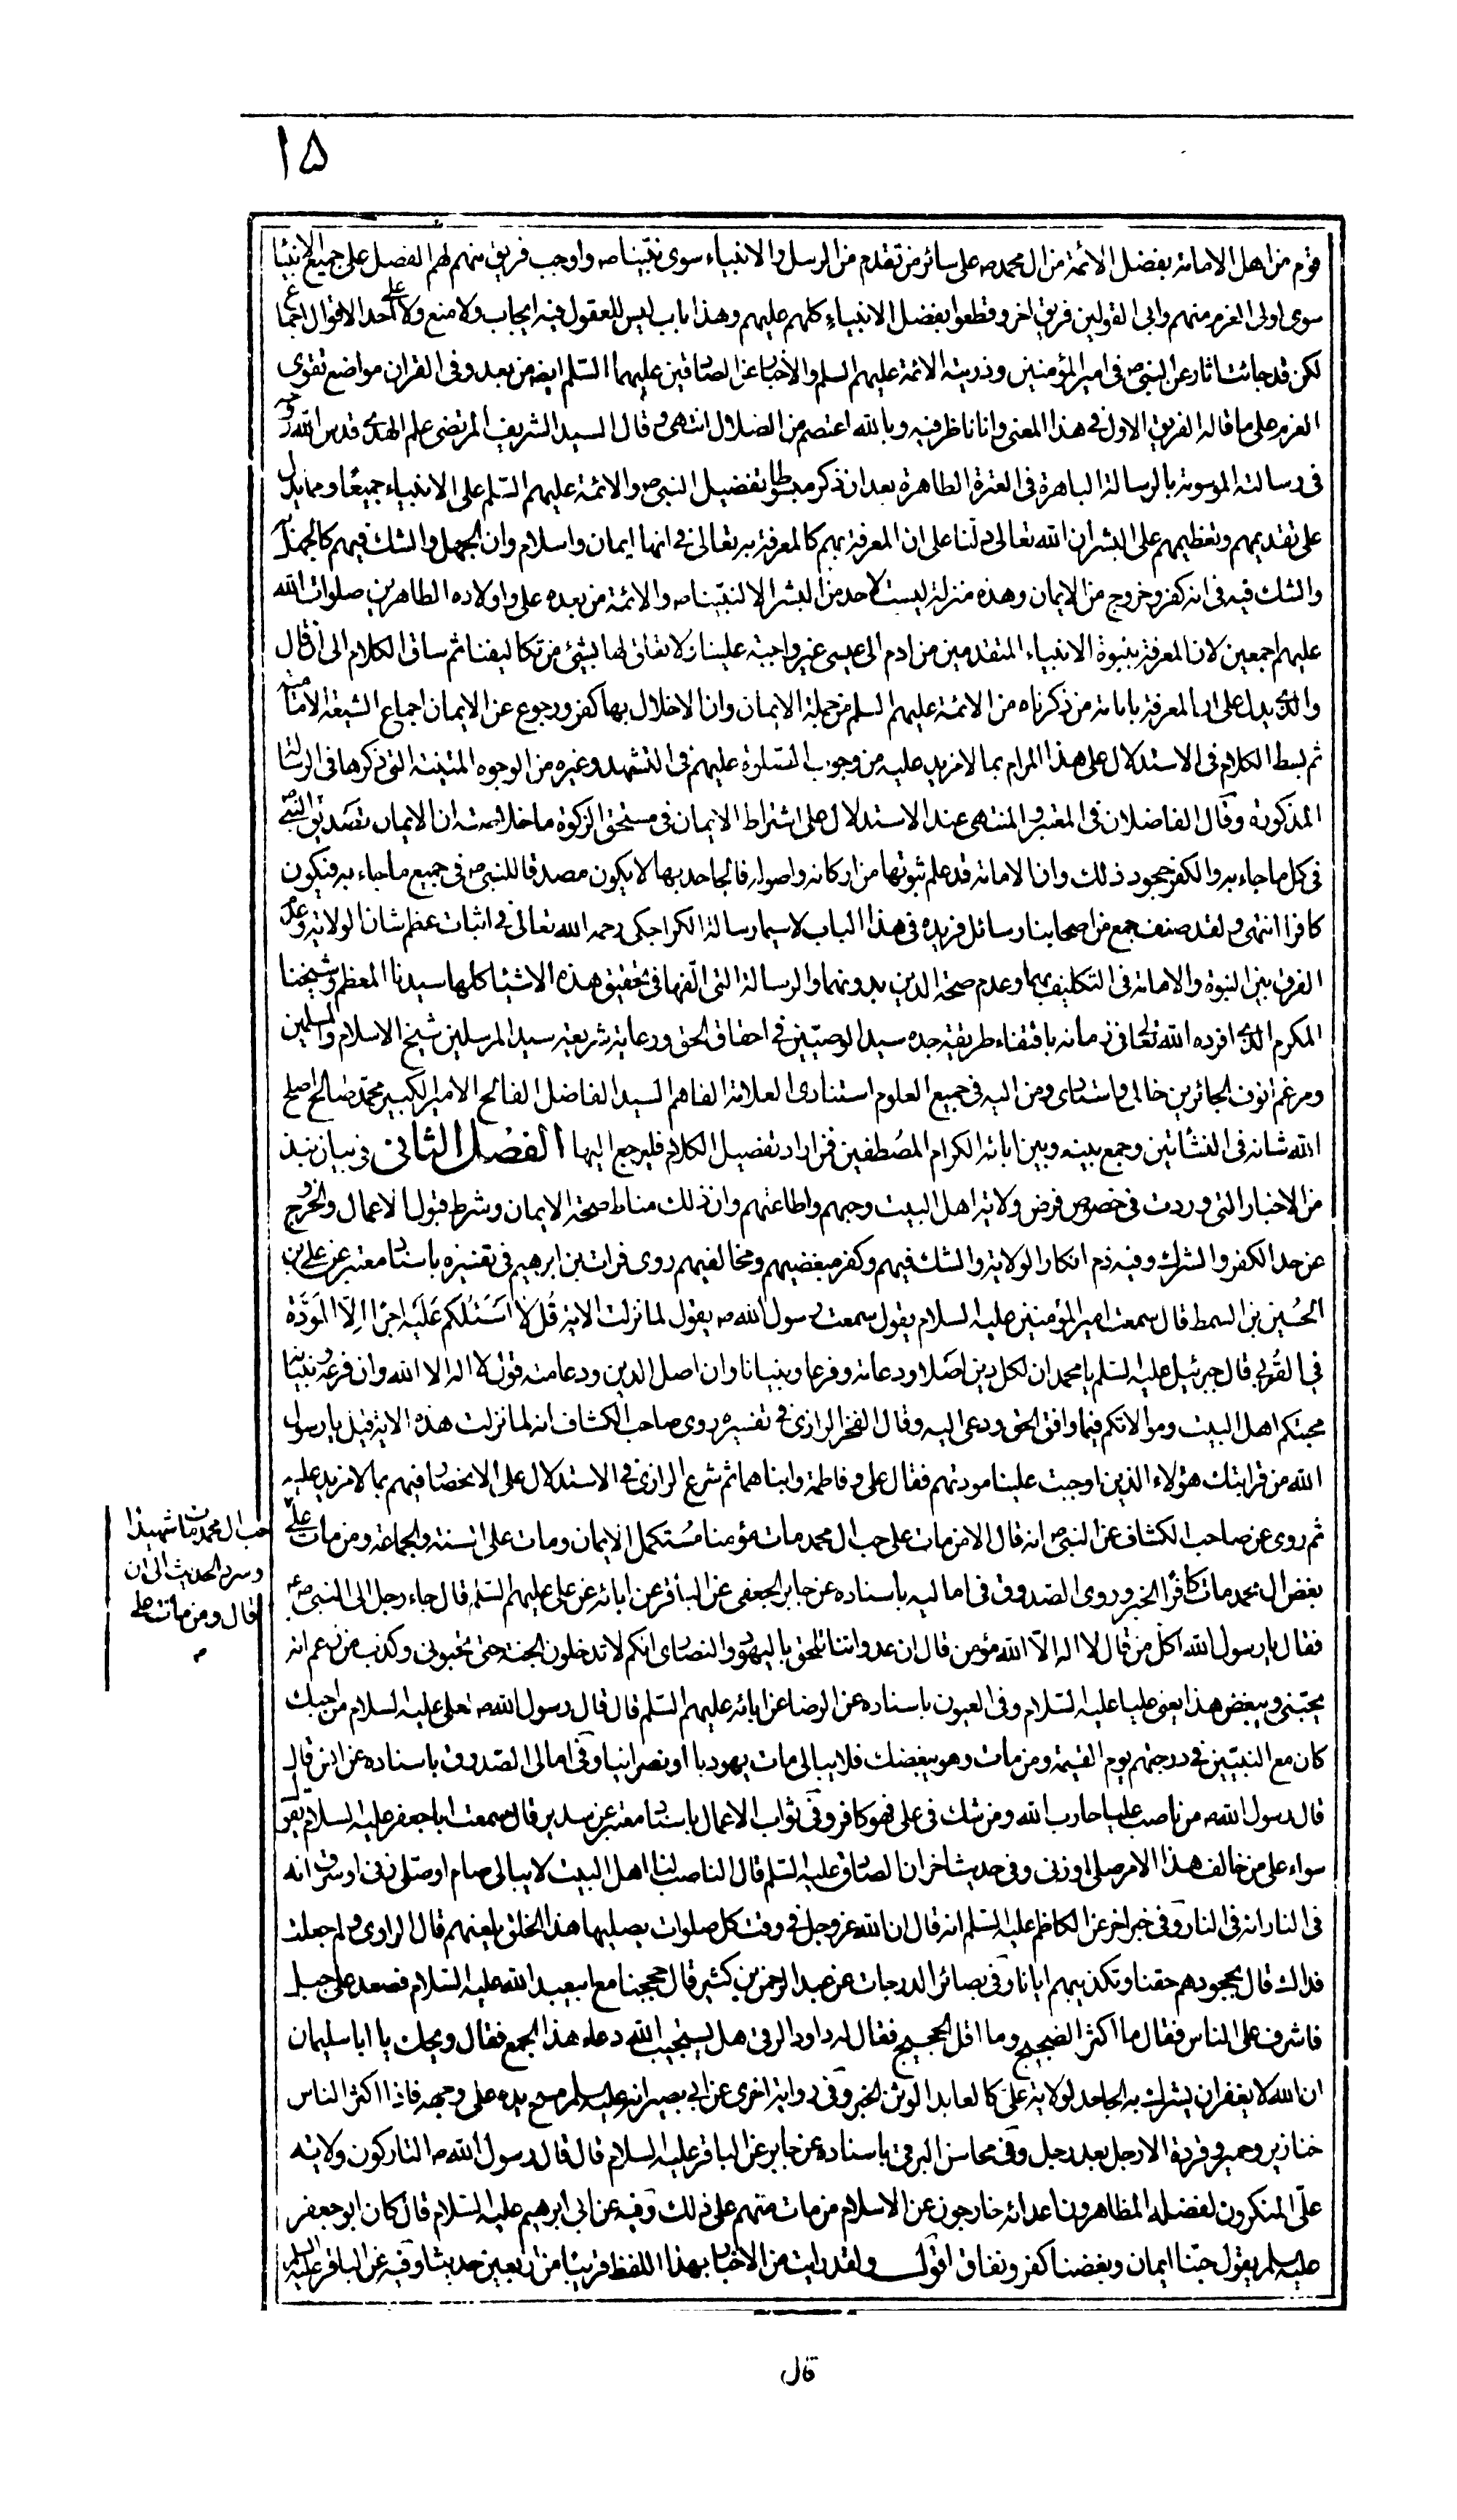 ١٥
قوم من اهل الامامة بفضل الائمة من ال محمد ص على سائر من تقدم من الرسل والانبياء سوى نبينا ص واوجب فريق منهم لهم الفضل على جميع الانبيا
سوى اولى العزم منهم وابى القولين فريق اخر وقطعوا بفضل الانبياء كلهم عليهم وهذا باب ليس للعقول فيه ايجاب ولا منع ولا على احد الاقوال اجماع
لكن قد جائت اثار عن النبي ص في امير المؤمنين وذريته الائمة عليهم السلم والاخبار عن الصادقين عليهما السلم ايضا من بعد وفي القران مواضع تقوى
العزم على ما قاله الفريق الاول في هذا المعنى وانا ناظر فيه وبالله اعتصم من الضلال انتهى وقال السيد الشريف المرتضى علم الهدى قدس الله روحه
في رسالته الموسومة بالرسالة الباهرة في العترة الطاهرة بعد ان ذكر مبسوطا تفضيل النبي ص والائمة عليهم السلم على الانبياء جميعا ومما يدل
على تقديمهم وتعظيمهم على البشر ان الله تعالى دلنا على ان المعرفة بهم كالمعرفة به تعالى في انها ايمان واسلام وان الجهل والشك فيهم كالجهل به
والشك فيه في انه كفر وخروج من الايمان وهذه منزلة ليست لاحد من البشر الا لنبينا ص والائمة من بعده على واولاده الطاهرين صلوات الله
عليهم اجمعين لان المعرفة بنبوة الانبياء المتقدمين من ادم الى عيسى غير واجبة علينا ولا تعلق لها بشئ من تكاليفنا ثم ساق الكلام الى ان قال
والذى يدل على ان المعرفة بامامة من ذكرناه من الائمة عليهم السلم من جملة الايمان وان الاخلال بها كفر ورجوع عن الايمان اجماع الشيعة الامامية
ثم بسط الكلام في الاستدلال على هذا المرام بما لا مزيد عليه من وجوب الصلوة عليهم في التشهد وغيره من الوجوه المتينة التي ذكرها في الرسالة
المذكورة وقال الفاضلان في المعتبر والمنتهى عند الاستدلال على اشتراط الايمان في مستحق الزكوة ما خلاصته ان الايمان تصديق النبي ص
في كل ما جاء به والكفر جحود ذلك وان الامامة قد علم ثبوتها من اركانه واصوله فالجاحد بها لا يكون مصدقا للنبي ص في جميع ما جاء به فيكون
كافرا انتهى ولقد صنف جمع من اصحابنا رسائل فريدة في هذا الباب لا سيما رسالة الكراجكى رحمه الله تعالى في اثبات عظم شان الولاية وعدم
الفرق بين النبوة والامامة في التكليف بهما وعدم صحة الدين بدونهما والرسالة التى الفها في تحقيق هذه الاشيا كلها سيدنا المعظم وشيخنا
المكرم الذى افرده الله تعالى في زمانه باقتفاء طريقة جده سيد الوصيين في احقاق الحق ورعاية شريعة سيد المرسلين شيخ الاسلام والمسلمين
ومرغم انوف الجائرين خالى واستادى ومن اليه في جميع العلوم استنادى العلامة الفاهم السيد الفاضل الفالح الامير الكبير محمد صالح اصلح
الله شانه في النشاتين وجمع بينه وبين ابائه الكرام المصطفين فمن اراد تفصيل الكلام فليرجع اليها الفصل الثاني في بيان نبذ
من الاخبار التى وردت في خصوص فرض ولاية اهل البيت وحبهم واطاعتهم وان ذلك مناط صحة الايمان وشرط قبول الاعمال والخروج
عن حد الكفر والشرك وفيه ذم انكار الولاية والشك فيهم وكفر مبغضيهم ومخالفيهم روى فرات بن ابرهيم في تفسيره باسناد معتبر عن علي بن
الحسين بن السمط قال سمعت امير المؤمنين عليه السلام يقول سمعت رسول الله ص يقول لما نزلت الاية قُل لا اَسئَلُكم عَلَيه اجرًا الّا المَودّة
في القُربى قال جبرئيل عليه السلم يا محمد ان لكل دين اصلا ودعامة وفرعا وبنيانا وان اصل الدين ودعامته قول لا اله الا الله وان فرعه وبنيانه
محبتكم اهل البيت وموالاتكم فيما وافق الحق ودعى اليه وقال الفخر الرازى في تفسيره روى صاحب الكشاف انه لما نزلت هذه الاية قيل يا رسول
الله من قرابتك هؤلاء الذين اوجبت علينا مودتهم فقال على وفاطمة وابناهما ثم شرع الرازى في الاستدلال على الانحصار فيهم بما لا مزيد عليه
ثم روى عن صاحب الكشاف عن النبي ص انه قال الا من مات على حب ال محمد مات مؤمنا مستكمل الايمان ومات على السنة والجماعة ومن مات على
حب ال محمد مات شهيدا
وسرد الحديث الى ان
قال ومن مات على
بغض ال محمد مات كافرا الخبر وروى الصدوق في اماليه باسناده عن جابر الجعفى عن الباقر عن ابائه عن على عليهم السلم قال جاء رجل الى النبي ص
فقال يا رسول الله اكل من قال لا اله الا الله مؤمن قال ان عداوتنا تلحق باليهود والنصارى انكم لا تدخلون الجنة حتى تحبونى وكذب من زعم انه
يحبنى ويبغض هذا يعنى عليا عليه السلام وفي العيون باسناده عن الرضا عن ابائه عليهم السلم قال قال رسول الله ص لعلى عليه السلام من احبك
كان مع النبيين في درجتهم يوم القيمة ومن مات وهو يبغضك فلا يبالى مات يهوديا او نصرانيا وفي امالى الصدوق باسناده عن انس قال
قال رسول الله ص من ناصب عليا حارب الله ومن شك في على فهو كافر وفي ثواب الاعمال باسناد معتبر عن سدير قال سمعت ابا جعفر عليه السلام يقول
سواء على من خالف هذا الامر صلى او زنى وفي حديث اخر ان الصادق عليه السلم قال الناصب لنا اهل البيت لا يبالى صام او صلى زنى او سرق انه
في النار انه في النار وفي خبر اخر عن الكاظم عليه السلم انه قال ان الله عز وجل في وقت كل صلوات يصليها هذا الخلق يلعنهم قال الراوى ولم جعلت
فداك قال بجحودهم حقنا وتكذيبهم ايانا وفي بصائر الدرجات عن عبد الرحمن بن كثير قال حججنا مع ابيعبد الله عليه السلام فصعد على جبل
فاشرف على الناس فقال ما اكثر الضجيج وما اقل الحجيج فقال له داود الرقى هل يستجيب الله دعاء هذا الجمع فقال ويحك يا ابا سليمان
ان الله لا يغفر ان يشرك به الجاحد لولاية على كالعابد الوثن الخبر وفي رواية اخرى عن ابى بصير انه عليه السلم مسح يده على وجهه فاذا اكثر الناس
خنازير وحمير وقردة الا رجل بعد رجل وفي محاسن البرقى باسناده عن جابر عن الباقر عليه السلام قال قال رسول الله ص التاركون ولاية
على المنكرون لفضله المظاهرون اعدائه خارجون عن الاسلام من مات منهم على ذلك وفيه عن ابى ابرهيم عليه السلام قال كان ابو جعفر
عليه السلم يقول حبنا ايمان وبغضنا كفر ونفاق اقول ولقد رايت من الاخبار بهذا اللفظ قريبا من اربعين حديثا وفيه عن الباقر عليه السلم
قال